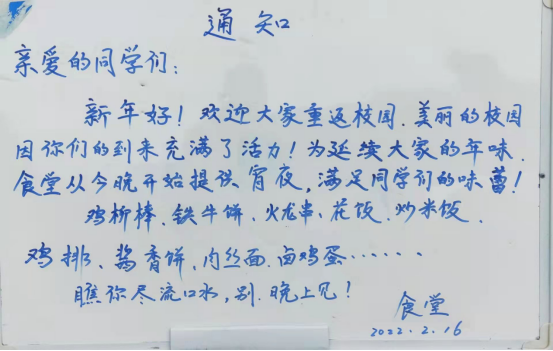 通知
亲爱的同学们:
新年好!欢迎大家重返校园.美丽的校园
因你们的到来充满了活力!为延续大家的年味.
食堂从今晚开始提供宵夜,满足同学们的味蕾!
鸡柳棒.铁牛饼.火龙串.花饭.炒米饭.
鸡排、酱香饼.肉丝面.卤鸡蛋······
瞧你尽流口水,别.晚上见!
食堂
2022.2.16